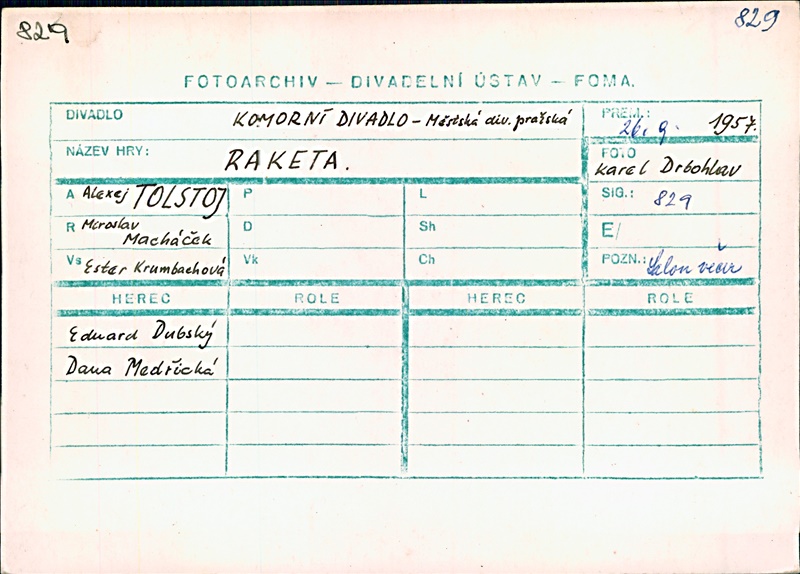 829
829
FOTOARCHIV — DIVADELNÍ ÚSTAV — FOMA.
DIVADLO KOMORNÍ DIVADLO – Městská div. pražská
PREM.: 26. 9. 1957.
NÁZEV HRY: RAKETA.
FOTO Karel Drbohlav
A Alexej TOLSTOJ P L
SIG.: 829
R Miroslav Macháček D Sh
E/
Vs Ester Krumbachová Vk Ch
POZN.: Salon večer
HEREC ROLE HEREC ROLE
Eduard Dubský
Dana Medřická